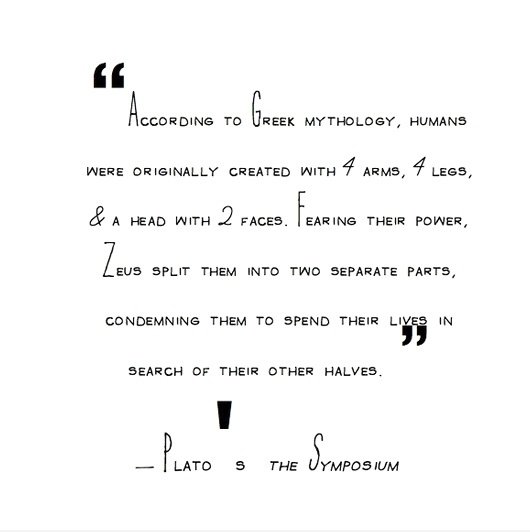 “According to Greek mythology, humans
were originally created with 4 arms, 4 legs,
& a head with 2 faces. Fearing their power,
Zeus split them into two separate parts,
condemning them to spend their lives in
search of their other halves.”
— Plato's the Symposium